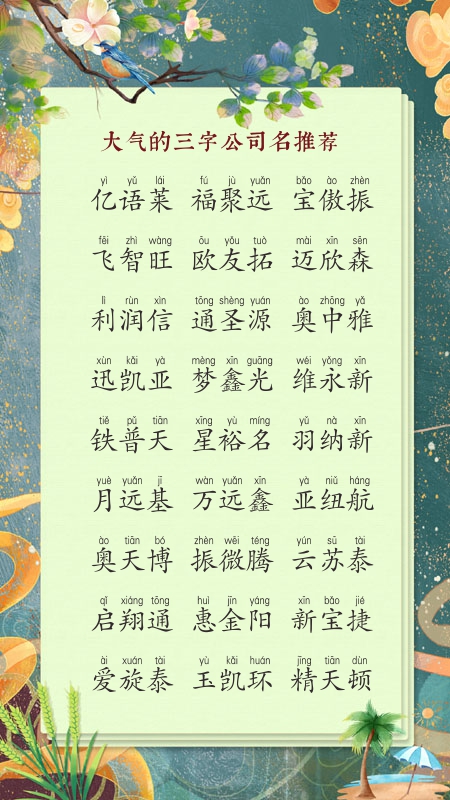 大气的三字公司名推荐
yì yǔ lái fú jù yuǎn bǎo ào zhèn
亿语莱 福聚远 宝傲振
fēi zhì wàng ōu yǒu tuò mài xīn sēn
飞智旺 欧友拓 迈欣森
lì rùn xìn tōng shèng yuán ào zhōng yǎ
利润信 通圣源 奥中雅
xùn kǎi yà mèng xīn guāng wéi yǒng xīn
迅凯亚 梦鑫光 维永新
tiě pǔ tiān xīng yù míng yǔ nà xīn
铁普天 星裕名 羽纳新
yuè yuǎn jī wàn yuǎn xīn yà niǔ háng
月远基 万远鑫 亚纽航
ào tiān bó zhèn wēi téng yún sū tài
奥天博 振微腾 云苏泰
qǐ xiáng tōng huì jīn yáng xīn bǎo jié
启翔通 惠金阳 新宝捷
ài xuán tài yù kǎi huán jīng tiān dùn
爱旋泰 玉凯环 精天顿